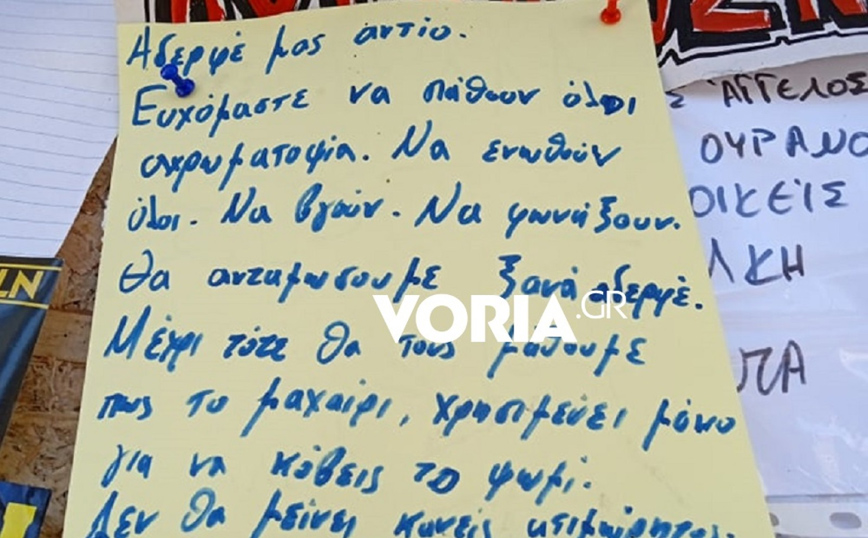 Αδερφέ μας αντίο.
Ευχόμαστε να πάθουν όλοι
αχρωματοψία. Να ενωθούν
όλοι. Να βγούν. Να φωνάξουν.
Θα ανταμωσουμε ξανά αδερφέ.
Μέχρι τότε θα τους μάθουμε
πως το μαχαίρι, χρησιμεύει μόνο
για να κόβεις το ψωμί.
Δεν θα μείνει κανείς ατιμώρητος.
VORIA.GR
ΑΓΓΕΛΟΣ
ΟΥΡΑΝΟ
ΟΙΚΕΙΣ
ΛΚΗ
LN